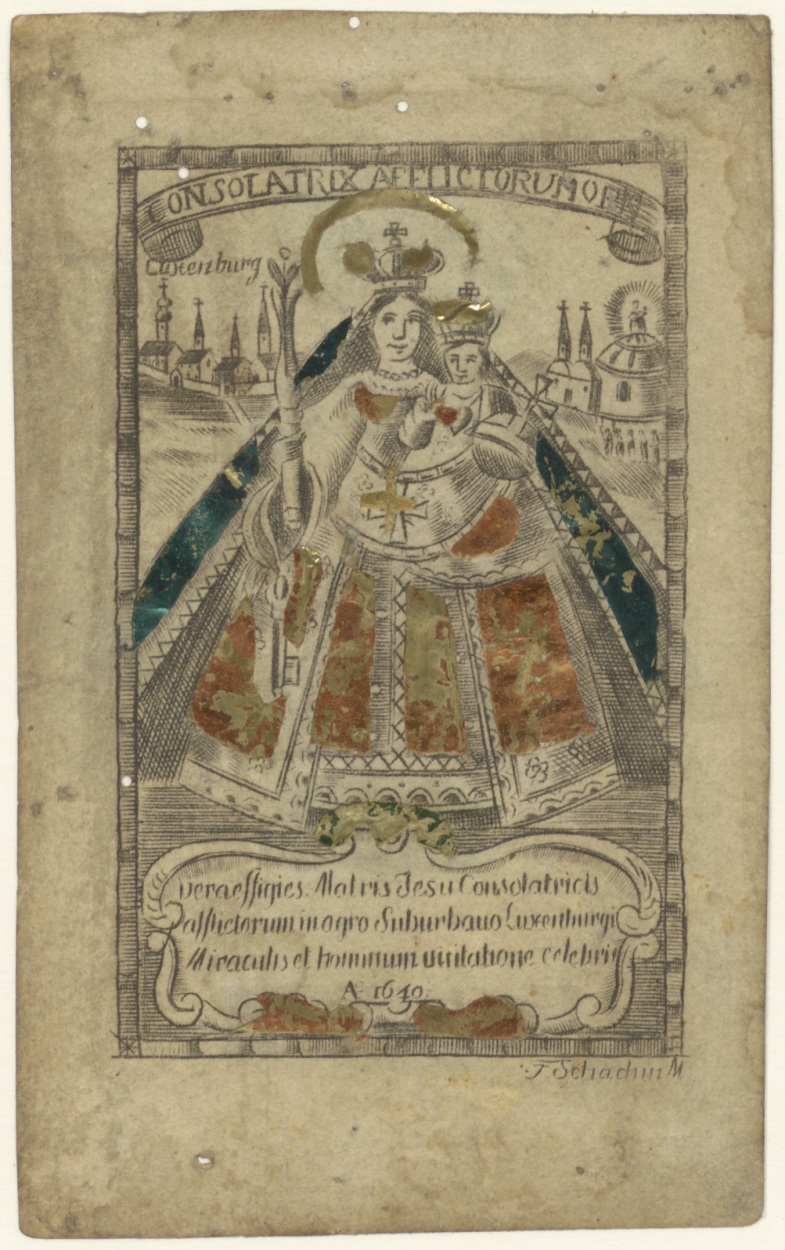 CONSOLATRIX AFFLICTORUM OPN
Luxenburg
vera effigies Matris Jesu Consolatricis
afflictorum in agro Suburbano Luxenburgi
Miraculis et hominum visitatione celebris
A. 1640.
F Schachin M